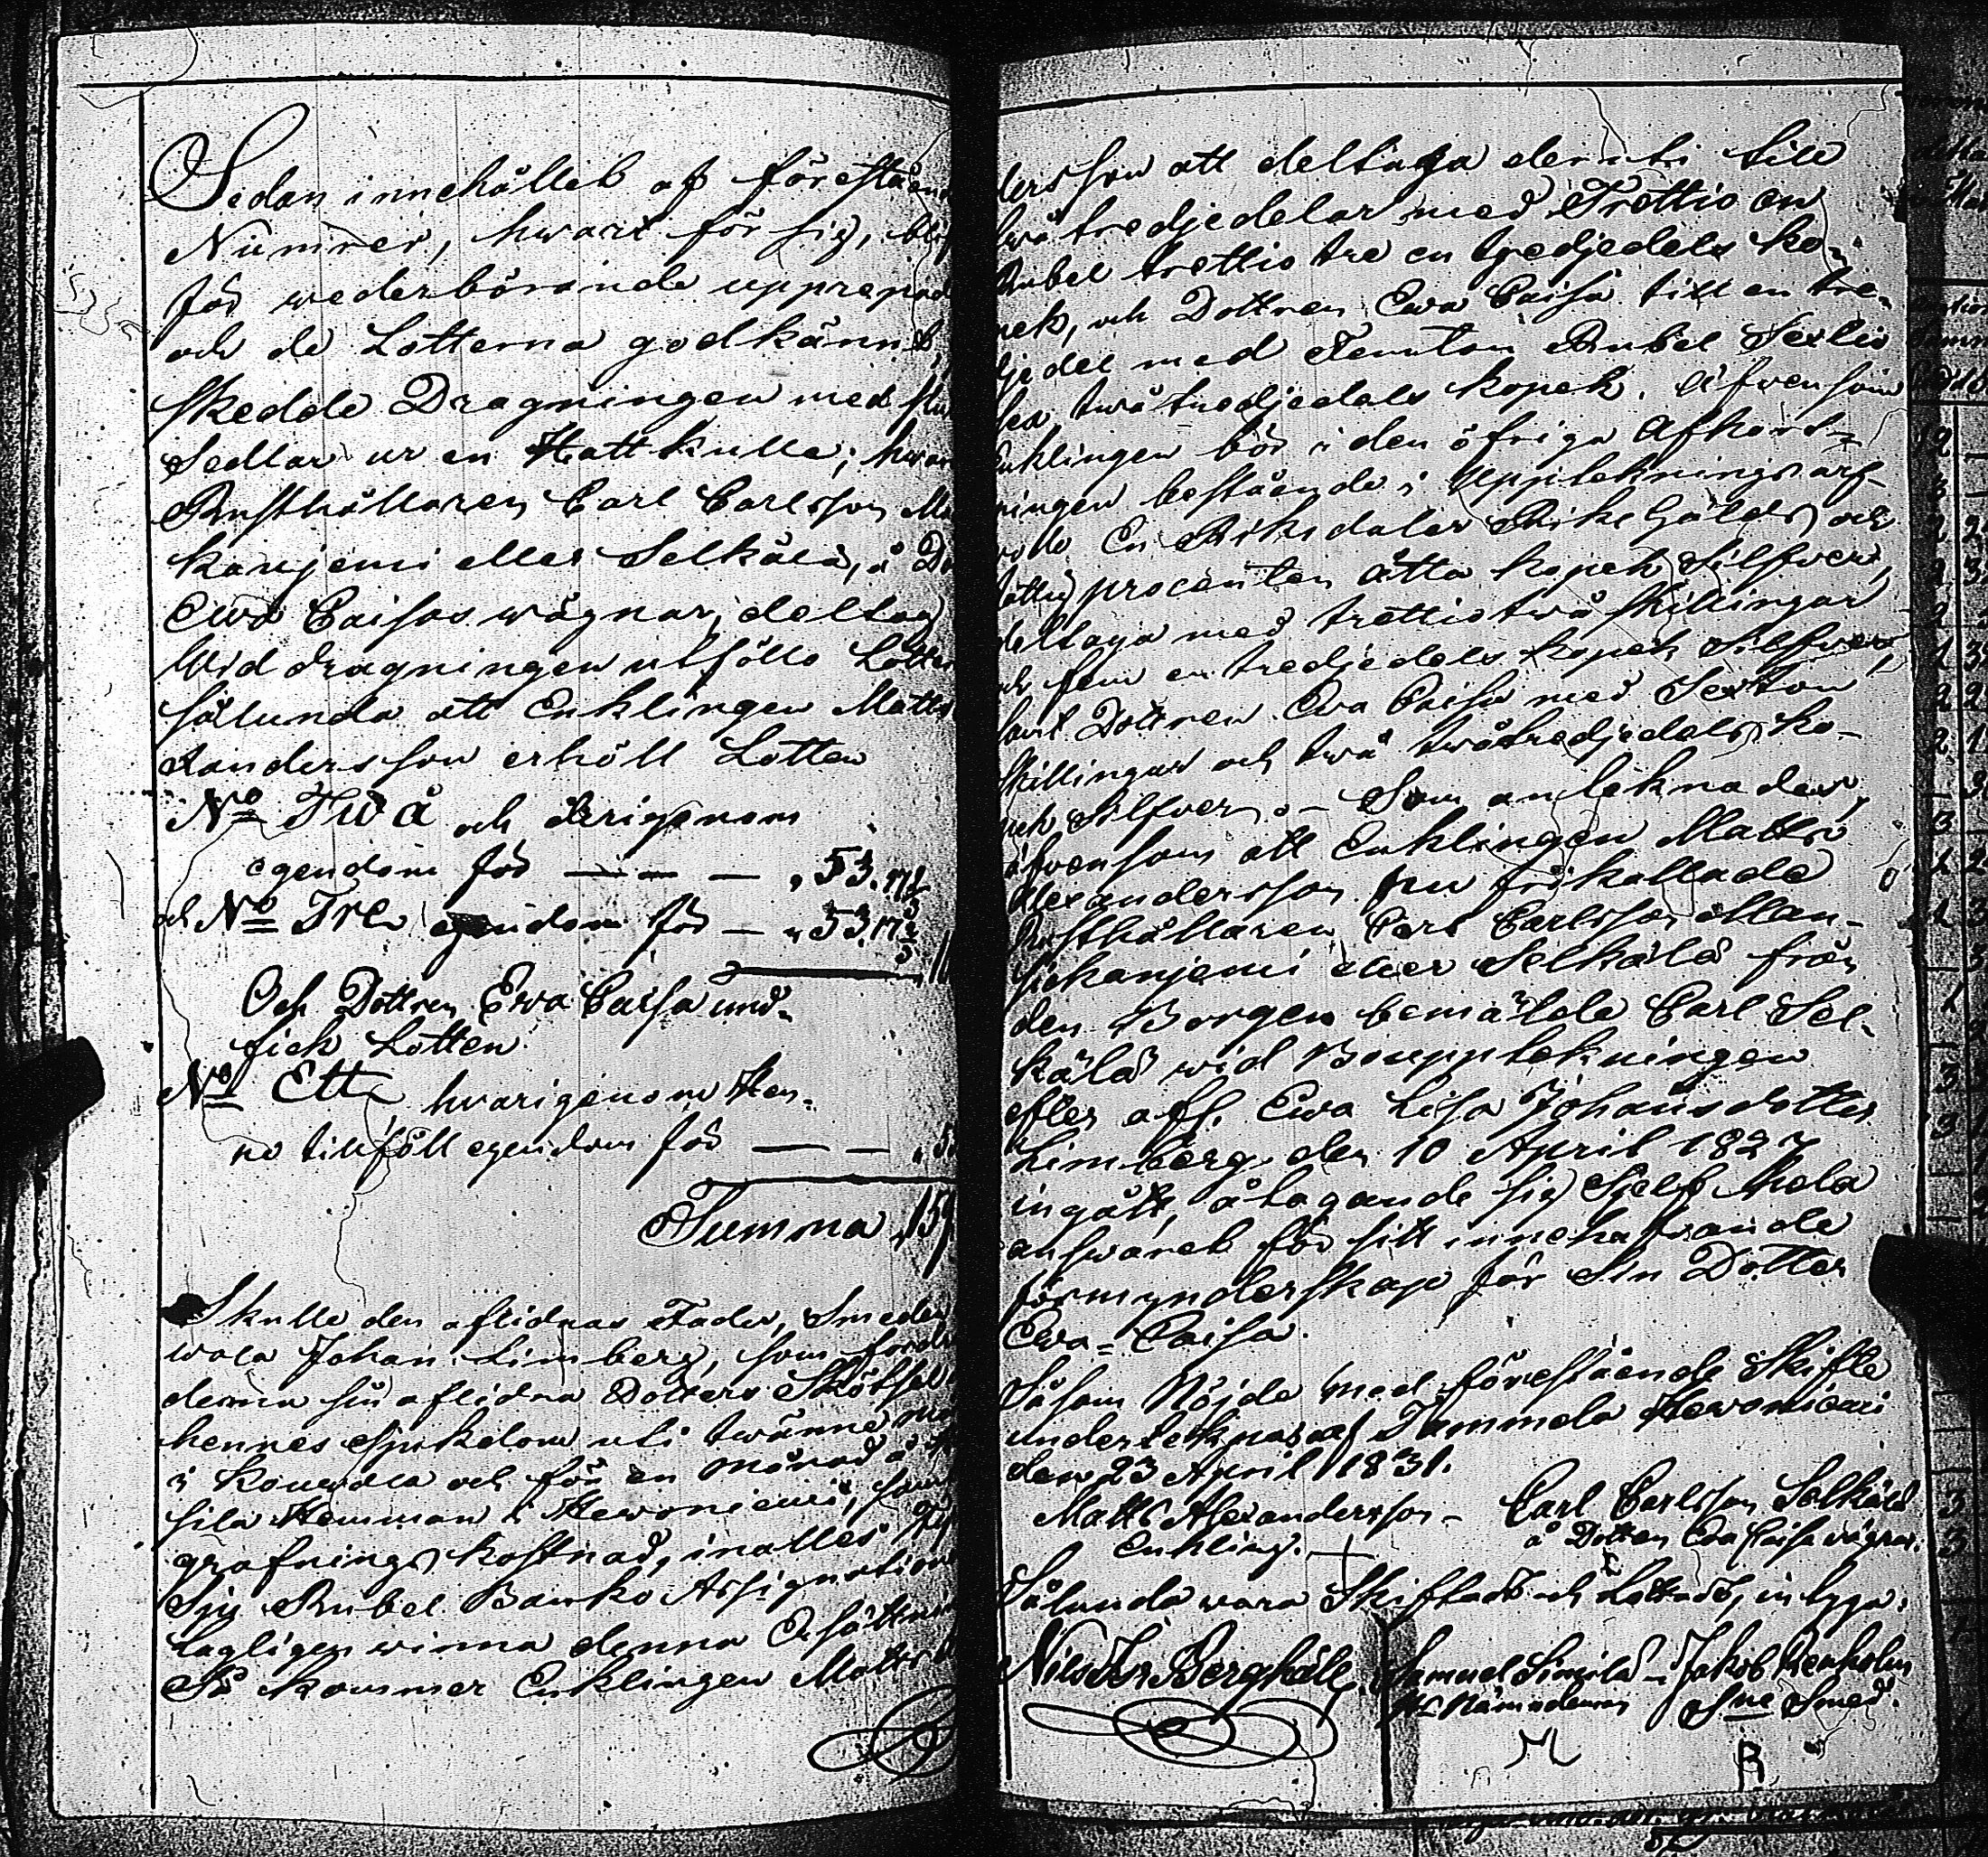 Sedan innehållet af föreståen
Numrer, hwart för sig, blif
för wederbörande upprepad
och de Lotterna godkännt,
skedde Dragningen med slu
Sedlar ur en Hattkulla; hwar
Rusthållaren Carl Carlsson Ma
kanjemi eller Selkälä, å Do
Ewa Caisas wägnar, deltog
Wid dragningen utföllo Lotter
sålunda att Enklingen Matts
andersson erhöll Lotten
No Twå och derigenom
egendom för — — — „ 53.17⅔
och No Tre egendom för — „ 53.17⅔
Och Dottren Ewa Caisa und-
fick Lotten
No Ett hvarigenom Hen-
ne tillföll egendom för — —
Summa „ 159
Skulle den aflidnas Fader, Smeden
wala Johan Limberg, som fordr
denna sin aflidna Dotters Skötsel
hennes sjukdom uti twänne må
i och för en månad å
sila Hemman i Hewoniemi, samt
grafnings kostnad, inalles
Sju Rubel Banko Assignation
lagligen winna denna Ersättni
Så kommer Enklingen Matts
dersson att deltaga deruti till
twå tredjedelar med Trettio en
Rubel trettio tre en tredjedels ko-
pek, och Dottren Ewa Caisa till en tre-
djedel med Femton Rubel Sextio
sex twå tredjedels kopek. Äfvensom
Enklingen bör i den öfriga Afkort-
ningen bestående i Upptecknings arf-
vode En Riksdaler Riks Gälds och
fattig procenten åtta kopek Silfver,
deltaga med trettiotwå skillingar
och fem en tredjedels kopek Silfver,
samt Dottren Eva Caisa med Sexton
skillingar och twå twåtredjedels ko-
pek Silfver. — Som antecknades,
äfvensom att Enklingen Matts
Alexandersson nu frikallade
Rusthållaren Carl Carlsson Man-
sikanjemi eller Selkälä från
den Borgen bemälde Carl Sel-
kälä wid Bouppteckningen
efter afl. Ewa Lisa Johansdotter
Limberg den 10 April 1827
ingått, åtagande sig Sjelf hela
answaret för sitt innehafvande
förmynderskap för Sin Dotter
Ewa-Caisa.
Såsom Nöjde med förestående Skifte
undertecknas af Tammela Hewoniemi
den 23 April 1831.
Matts Alexandersson – Carl Carlsson Selkälä
Enkling. å Dottren Eva Caisa wägnar.
Sålunda vara Skiftadt och Lottadt, intyga:
Nils Joh Bergkäll. Samuel Simila Jakob Renholm
Nämndeman Sne Smed.
R